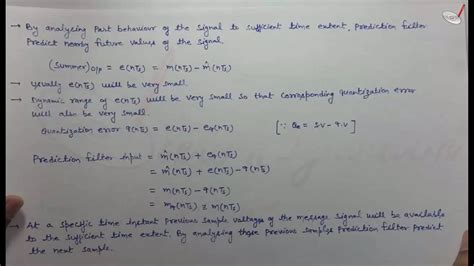 → By analysing Past behaviour of the signal to sufficient time extent, Prediction filter
Predict nearby future values of the signal.
(summer)O/P = e(nTs) = m(nTs) - m̂(nTs)
→ Usually e(nTs) will be very small.
→ Dynamic range of e(nTs) will be very small so that corresponding Quantization error
will also be very small.
Quantization error q(nTs) = e(nTs) - eq(nTs) [∵ Qe = S.V - q.V]
Prediction filter input = m̂(nTs) + eq(nTs)
= m̂(nTs) + e(nTs) - q(nTs)
= m(nTs) - q(nTs)
= mq(nTs) ≅ m(nTs)
→ At a specific time instant Previous sample voltages of the message signal will be available
to the sufficient time extent. By analysing those previous samples Prediction filter Predict
the next sample.